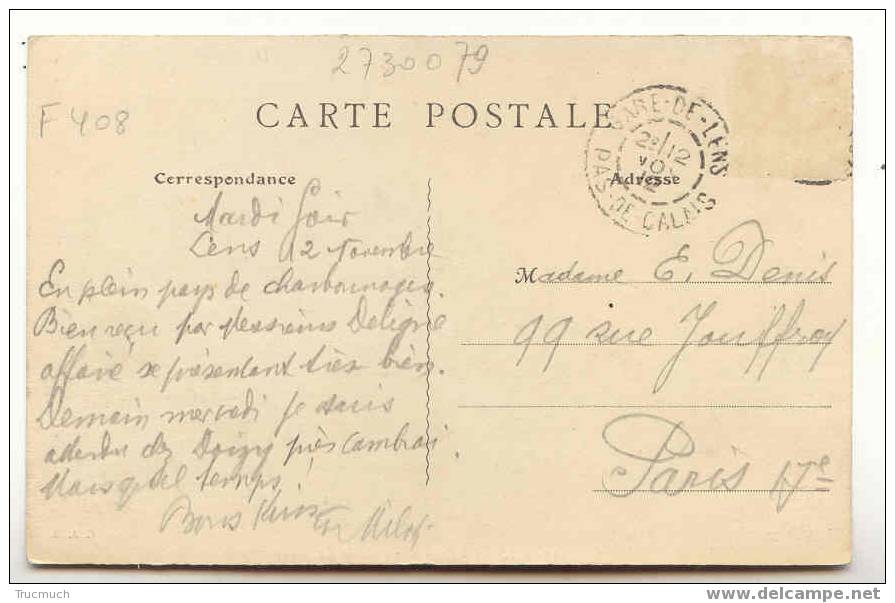 2730079
F 408
CARTE POSTALE
GARE-DE-LENS
PAS-DE-CALAIS
Correspondance
Adresse
Mardi Soir
Lens 12 Novembre
En plein pays de charbonnages.
Bien reçu par Messieurs Deligne
affaire se présentant très bien.
Demain mercredi je suis
attendu chez Doigny près Cambrai
Mais quel temps!
Bons
Madame E. Denis
99 rue Jouffroy
Paris 17e
Trucmuch
www.delcampe.net